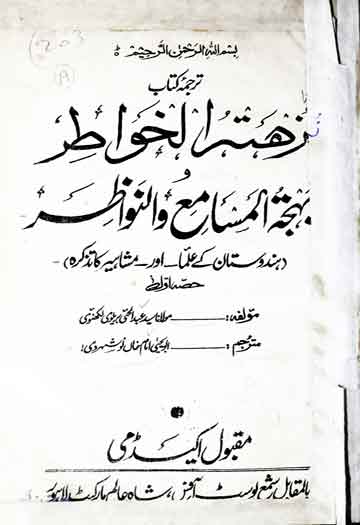 بسم اللہ الرحمٰن الرحیم
ترجمۂ کتاب
نزھتہ الخواطر
و
بہجتہ المسامع والنواظر
(ہندوستان کے علما اور مشاہیر کا تذکرہ)
حصہ اول
مؤلفہ: مولانا سید عبدالحئی بریلوی لکھنوی
مترجم: ابو یحییٰ امام خاں نوشہروی
مقبول اکیڈمی
بالمقابل شمع پوسٹ آفس، شاہ عالم مارکیٹ لاہور